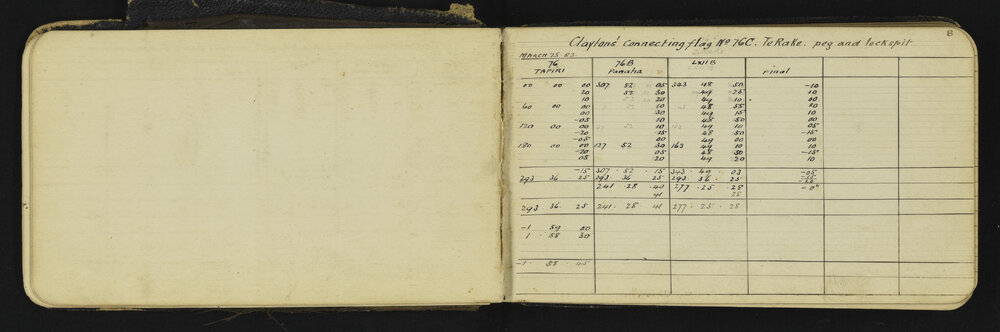 8
Claytons' Connecting flag No 76C. Te Rake. peg and lockspit
March 25 83
76 76B LXIIB
TAPIRI Panaha Final
00 00 00 307 52 05 343 48 50 -10
20 52 30 49 25 10
10 52 20 49 10 00
60 00 00 10 48 55 00
00 30 49 15 10
-05 10 48 50 00
120 00 00 52 10 49 10 05
-20 15 48 50 -15
-05 00 49 00 00
180 00 00 127 52 30 163 49 10 10
-20 05 48 50 -15
05 20 49 20 10
-15 307 52 15 343 49 03 -05
293 36 25 293 36 25 293 36 25
241 28 40 277 25 28
41 25
293 36 25 241 28 41 277 25 28
-1 59 50
1 58 30
-1 58 45